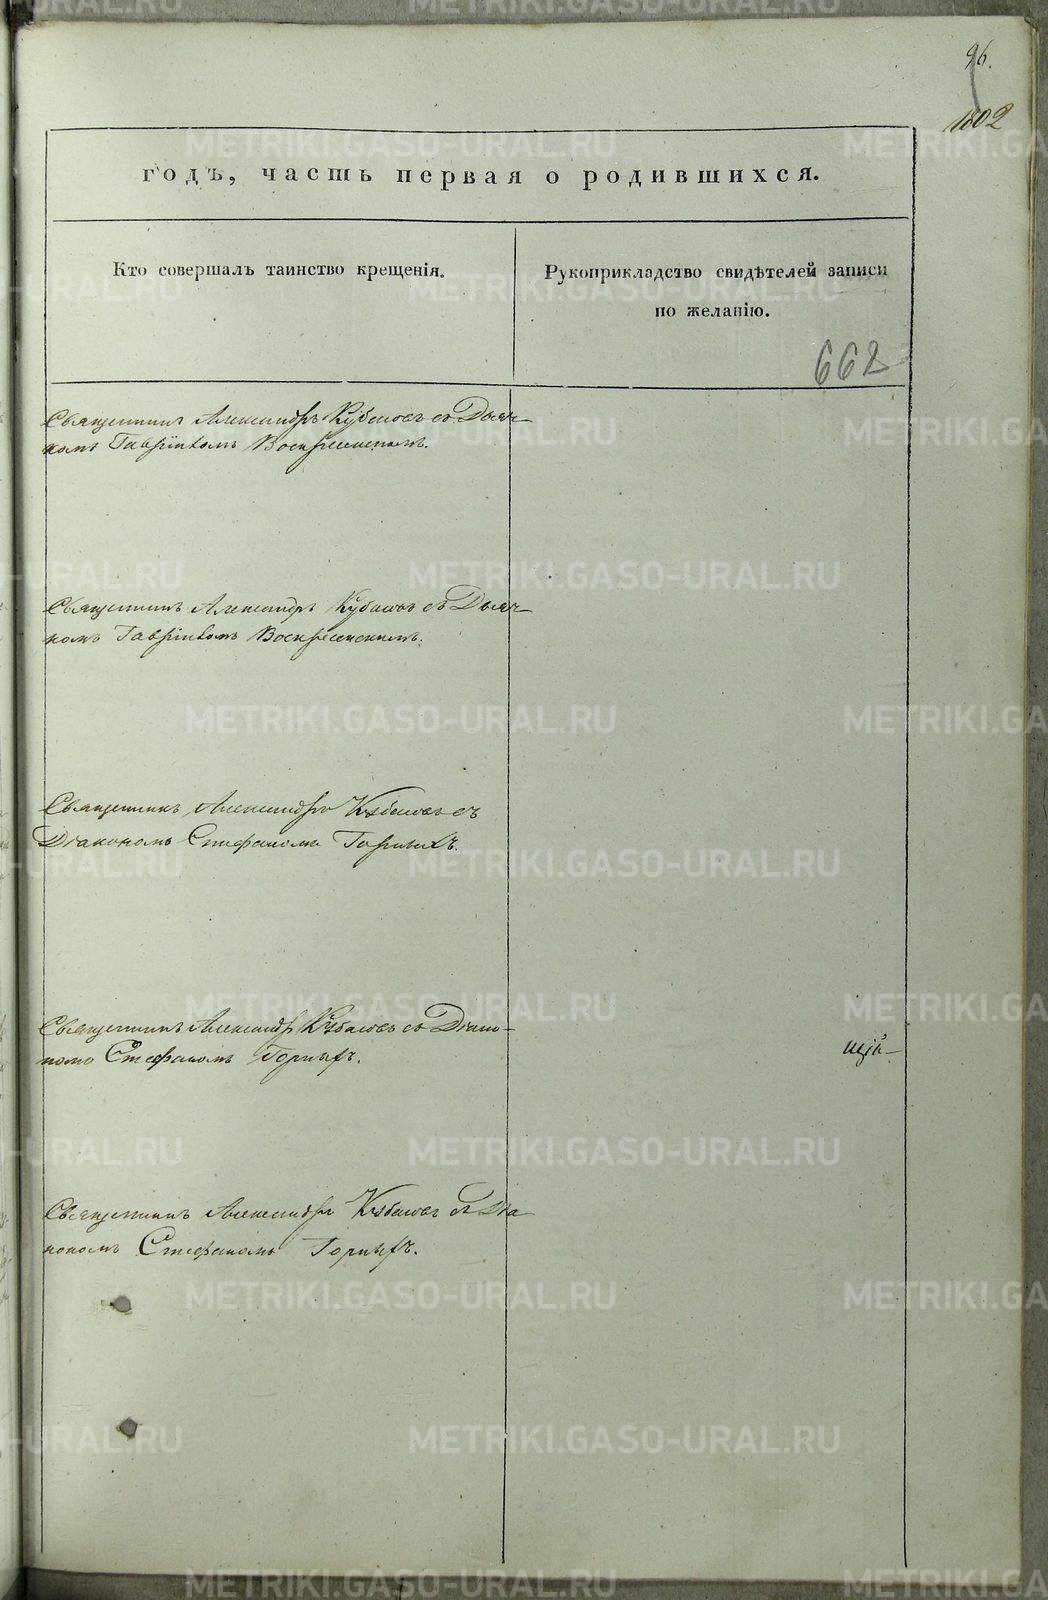 96.
1802
годъ, часть первая о родившихся.
Кто совершалъ таинство крещенія.
Рукоприкладство свидѣтелей записи
по желанію.
662
Священникъ Александръ Кубасовъ съ Дьяч-
комъ Гавріиломъ Воскресенскимъ.
Священникъ Александръ Кубасовъ съ Дьяч-
комъ Гавріиломъ Воскресенскимъ.
Священникъ Александръ Кубасовъ съ
Діакономъ Стефаномъ Горныхъ.
Священникъ Александръ Кубасовъ съ Діако-
номъ Стефаномъ Горныхъ.
щій
Священникъ Александръ Кубасовъ съ Діа-
кономъ Стефаномъ Горныхъ.
METRIKI.GASO-URAL.RU